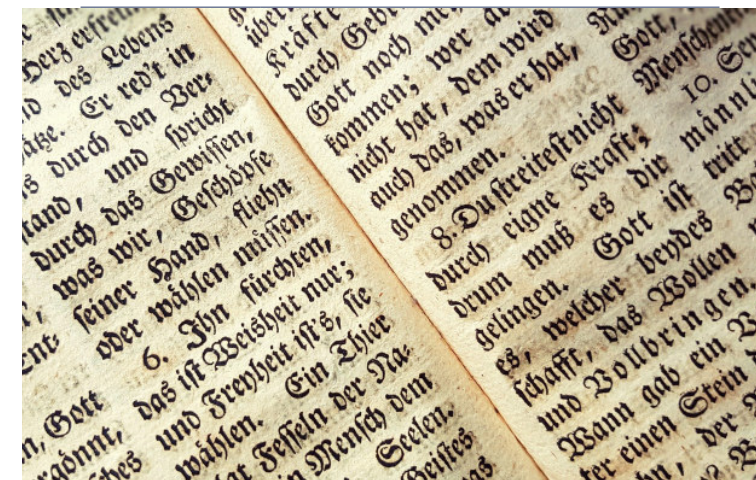 Herz erfreu
des Lebens
Er red't in
durch den Ver-
und spricht
durch das Gewissen,
was wir, Geschöpfe
seiner Hand, fliehn
oder wählen müssen.
6. Ihn fürchten,
das ist Weisheit nur;
und Freyheit ist's, sie
wählen. Ein Thier
Fesseln der Na-
Mensch dem
Seelen.
Geistes
Gott
Kräfte
durch Geb
Gott noch
kommen; wer
nicht hat, dem wird
auch das, was er hat,
genommen.
8. Du streitest nicht
durch eigne Kraft;
drum muß es dir
gelingen. Gott ist
es, welcher beydes
schafft, das Wollen
und Vollbringen.
Wann gab ein
ter einen Stein
der
Gott,
Menschen
10.
männl
tritt